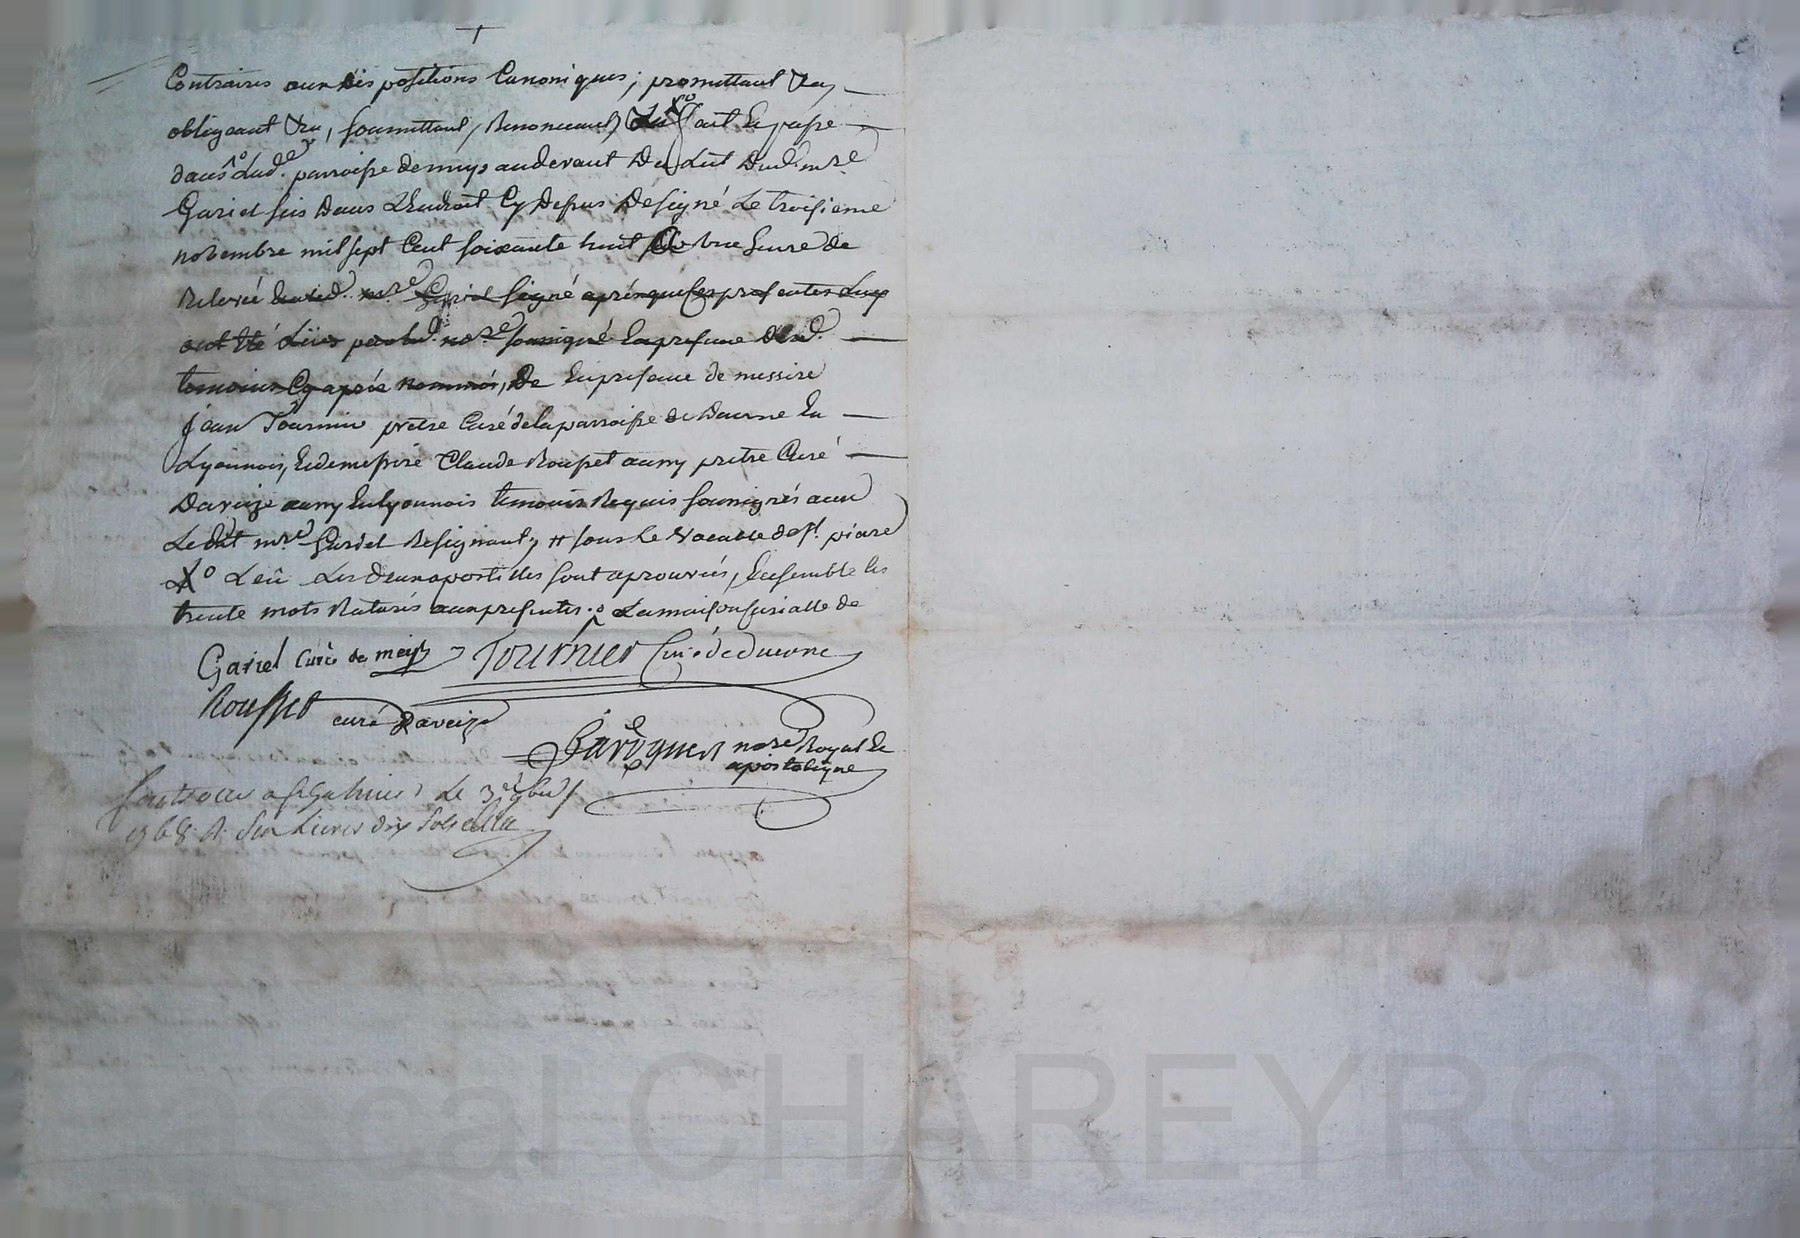 Contraires aux dis positions Canoniques; promettant &a,
obligeant &a, soumettant, Renonceant, &a X° fait Et passé
dans 1° Lad.e parroisse de meys au devant Du Lit Dud. m.re
Gariel sis Dans L'Endroit Cy Dessus Designé Le troisieme
novembre mil sept Cent soixante huit Sur Une heure de
Relevée Gariel signé aprés que Ces presentes Luy
ont Eté Lües par led. no.re soussigné En presence Desd.
temoins Cy aprés nommés, De En presence de messire
jean Tournier prêtre Curé de la parroisse de Duerne En
Lyonnois, Et de messire Claude Rousset aussy prêtre Curé
Daveize aussy En lyonnois temoins Requis soussignés avec
Le dit m.re Gariel Resignant, # sous Le Vocable de st. piere
X° Leû Les deux apostilles sont aprouvées, Ensemble les
trente mots Raturés aux presentes. 1° La maison Curialle de
Gariel Curé de meys Tournier Curé de duerne
Rousset curé Daveize
no.re Royal Et
apostolique
Le 3e 9bre
768 R. Six Livres dix sols
ascal CHAREYRON